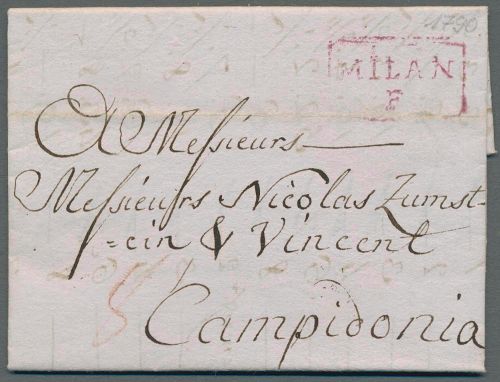 1790
MILAN
F
A Meſsieurs
Meſsieurs Nicolas Zumst-
=ein & Vincent
Campidonia